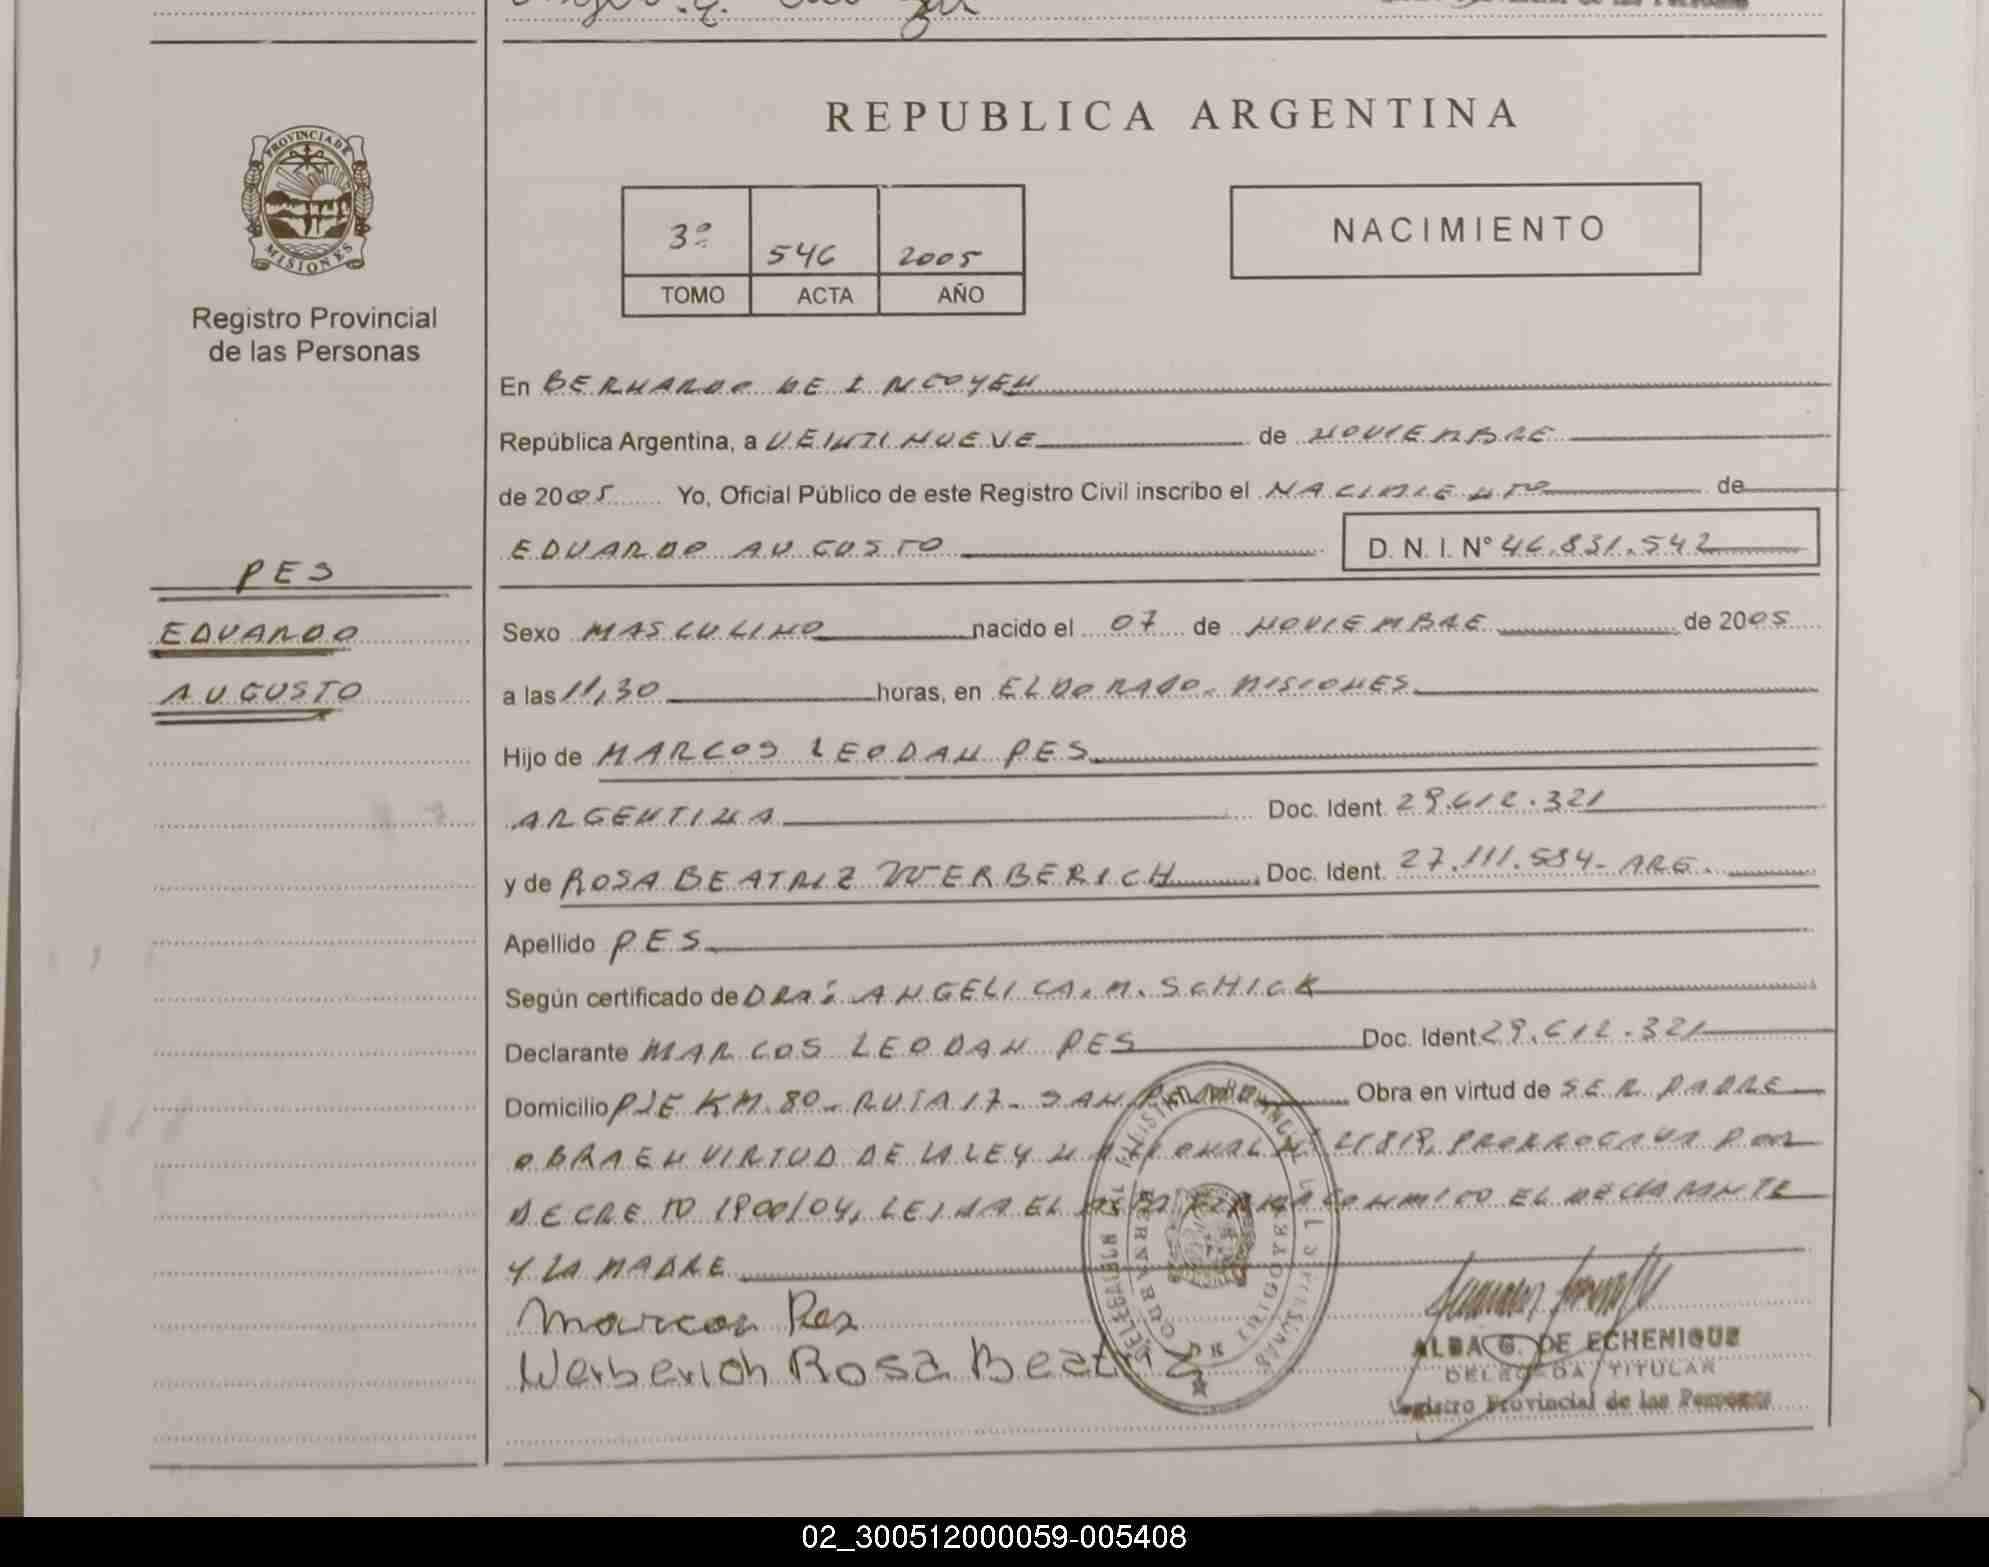 PROVINCIA DE
MISIONES
Registro Provincial
de las Personas
PES
EDUARDO
AUGUSTO
REPUBLICA ARGENTINA
3º 546 2005
TOMO ACTA AÑO
NACIMIENTO
En BERNARDO DE IRIGOYEN
República Argentina, a VEINTINUEVE de NOVIEMBRE
de 2005 Yo, Oficial Público de este Registro Civil inscribo el NACIMIENTO de
EDUARDO AUGUSTO D. N. I. N° 46.831.542
Sexo MASCULINO nacido el 07 de NOVIEMBRE de 2005
a las 11,30 horas, en ELDORADO - MISIONES
Hijo de MARCOS LEODAN PES
ARGENTINA Doc. Ident. 29.612.321
y de ROSA BEATRIZ WERBERICH Doc. Ident. 27.111.584 - ARG.
Apellido PES
Según certificado de DRA: ANGELICA. M. SCHICK
Declarante MARCOS LEODAN PES Doc. Ident 29.612.321
Domicilio PJE KM. 80 - RUTA 17 - SAN Obra en virtud de SER PADRE
OBRA EN VIRTUD DE LA LEY NACIONAL Nº PRORROGADA POR
DECRETO 1900/04, LEIDA EL ACTA FIRMA CONMIGO EL DECLARANTE
Y LA MADRE
Marcos Pes
Werberich Rosa Beatriz
ALBA G. DE ECHENIQUE
DELEGADA TITULAR
Registro Provincial de las Personas
02_300512000059-005408